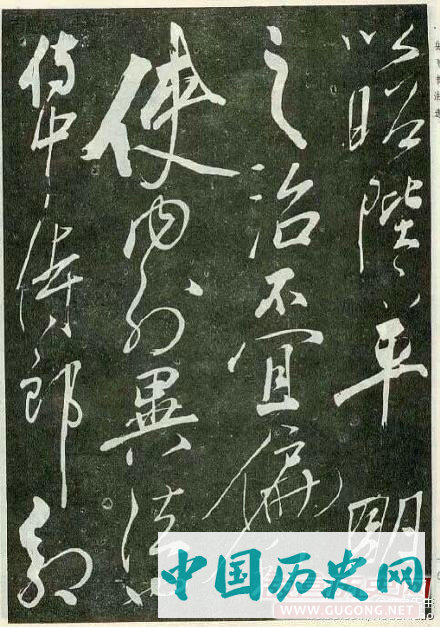 以昭陛下平明
之治不宜偏
使内外異法
侍中侍郎郭
中国历史网
WWW.GUGONG.NET